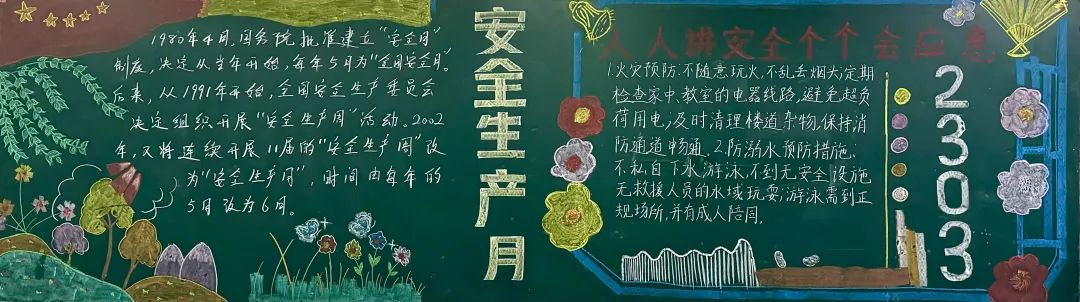 1980年4月,国务院批准建立“安全月”
制度,决定从当年开始,每年5月为“全国安全月。
后来,从1991年开始,全国安全生产委员会
决定组织开展“安全生产周”活动。2002
年,又将连续开展11届的“安全生产周”改
为“安全生产月”,时间由每年的
5月改为6月。
安全生产月
人人讲安全个个会应急
1.火灾预防:不随意玩火,不乱丢烟头;定期
检查家中、教室的电器线路,避免超负
荷用电;及时清理楼道杂物,保持消
防通道畅通。2.防溺水预防措施:
不私自下水游泳,不到无安全设施
无救援人员的水域玩耍;游泳需到正
规场所,并有成人陪同。
2303